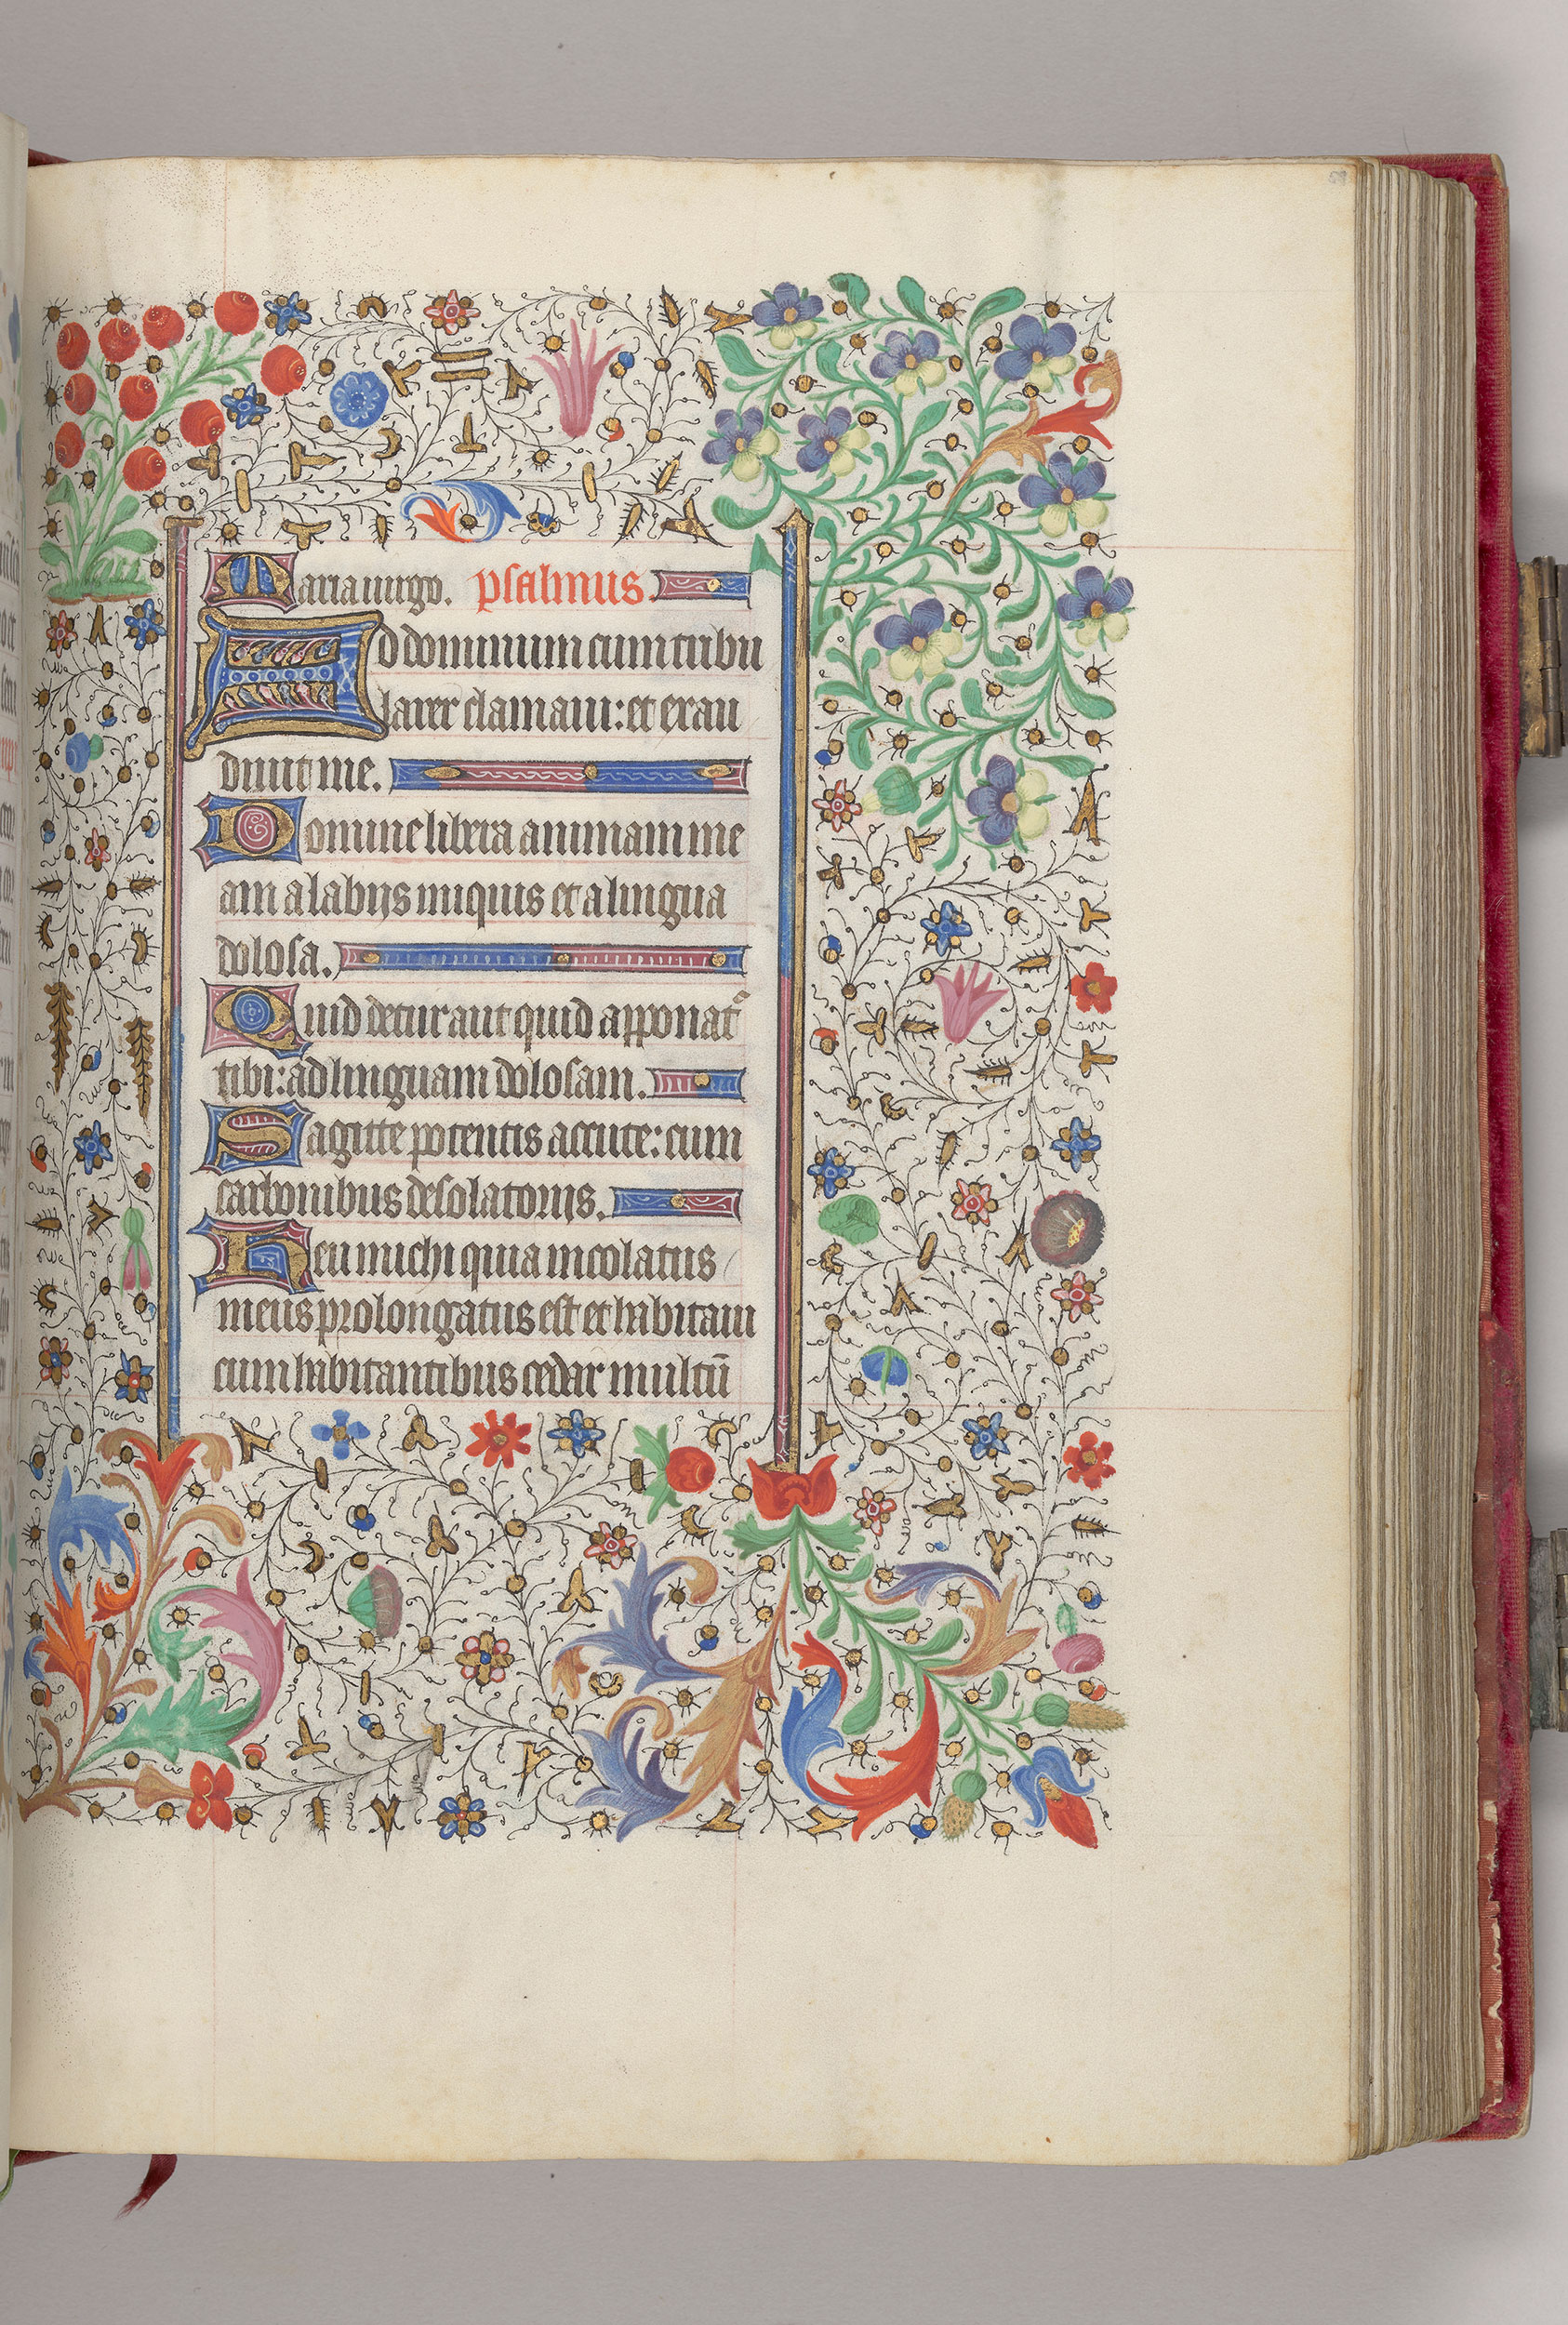 Maria uirgo. psalmus.
Ad dominum cum tribu
larer clamaui: et exau
diuit me.
Domine libera animam me
am a labijs iniquis et a lingua
dolosa.
Quid detur aut quid apponat᷑
tibi: ad linguam dolosam.
Sagitte potentis accute: cum
carbonibus desolatorijs.
Heu michi quia incolatus
meus prolongatus est et habitaui
cum habitantibus cedar multū